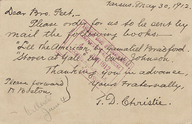 Tarsus, May 30, 1912.
Dear Bro. Peet,-
Please order for us to be sent by
mail the following books.-
"Lee The American" by Gamaliel Bradford.
"Stover at Yale", by Owen Johnson.
Thanking you in advance,
Yours Fraternally,
T. D. Christie.
Please forward